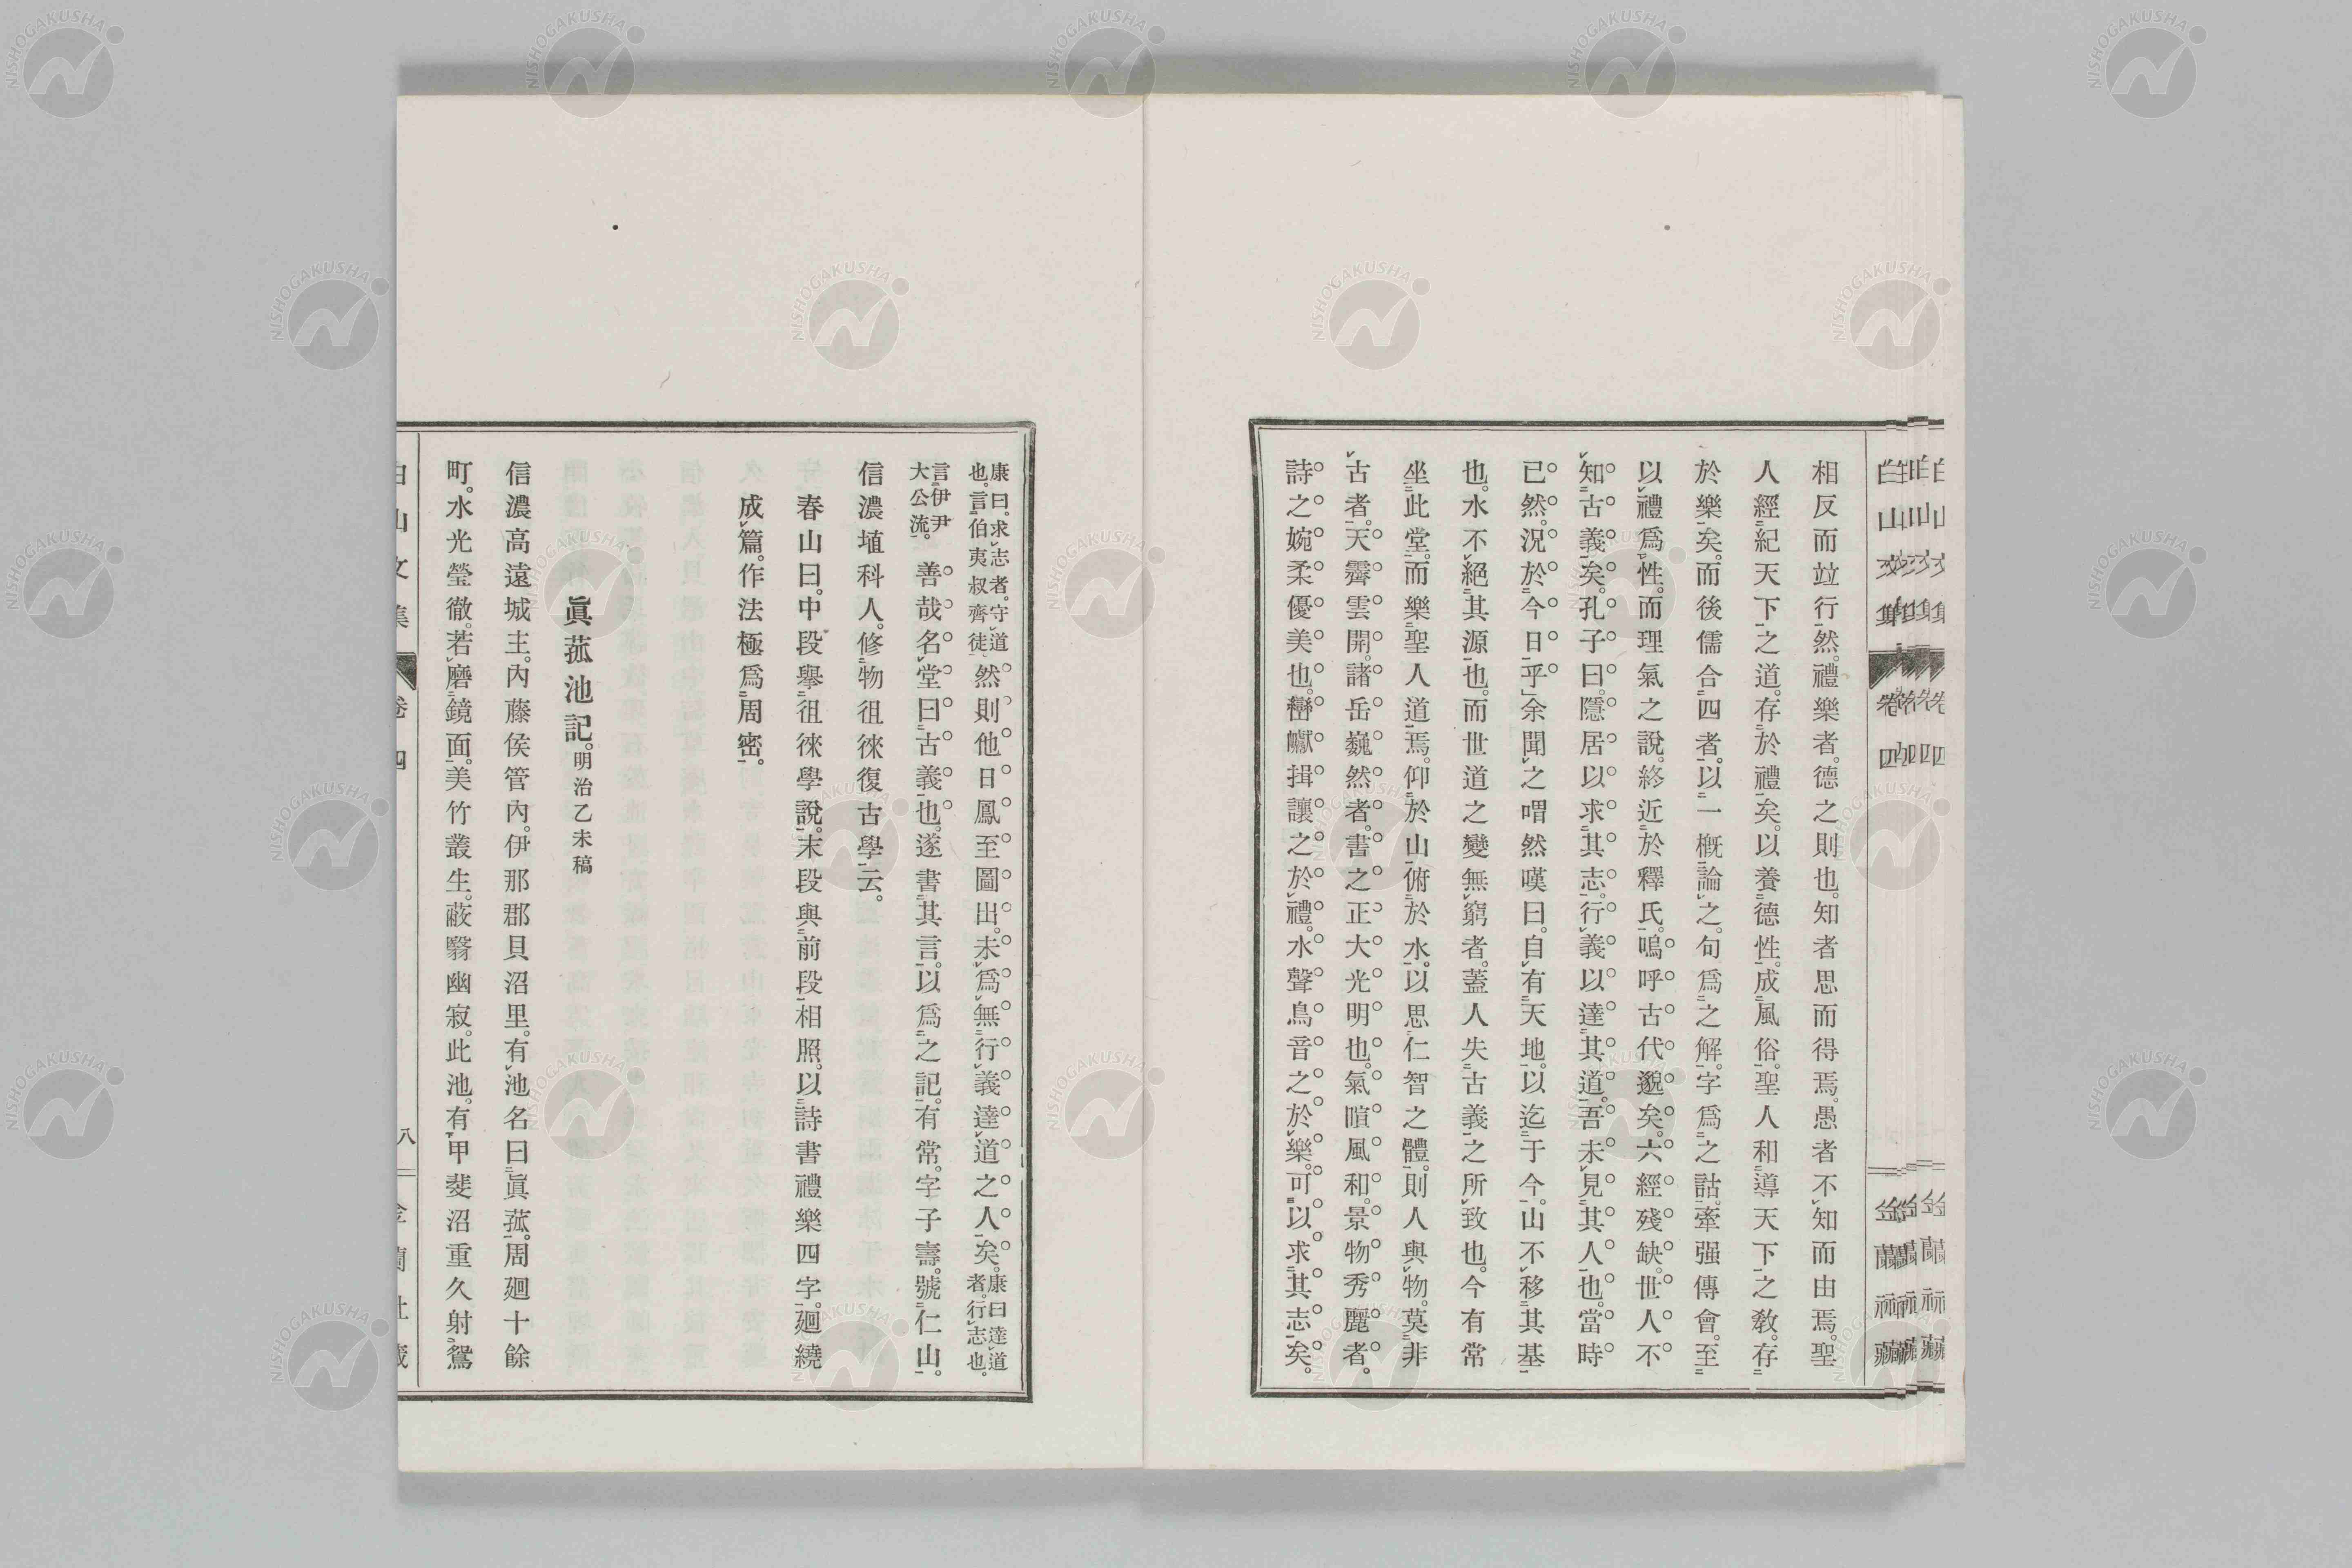 相反而竝行。然禮樂者。德之則也。知者思而得焉。愚者不知而由焉。聖
人經紀天下之道。存於禮矣。以養德性。成風俗。聖人和導天下之敎。存
於樂矣。而後儒合四者。以一概論之。句爲之解。字爲之詁。牽强傳會。至
以禮爲性。而理氣之說。終近於釋氏。嗚呼古代邈矣。六經殘缺。世人不
知古義矣。孔子曰。隱居以求其志。行義以達其道。吾未見其人也。當時
已然。況於今日乎」余聞之喟然嘆曰。自有天地。以迄于今。山不移其基
也。水不絕其源也。而世道之變無窮者。蓋人失古義之所致也。今有常
坐此堂。而樂聖人道焉。仰於山俯於水。以思仁智之體。則人與物。莫非
古者。天霽雲開。諸岳巍然者。書之正大光明也。氣暄風和。景物秀麗者。
詩之婉柔優美也。巒巘揖讓之於禮。水聲鳥音之於樂。可以求其志矣。
康曰。求志者。守道也。言伯夷叔齊徒。然則他日鳳至圖出。未爲無行義達道之人矣。康曰達道者。行志也。
言伊尹大公流。善哉名堂曰古義也。遂書其言。以爲之記。有常。字子壽。號仁山。
信濃埴科人。修物徂徠復古學云。
春山曰。中段擧徂徠學說。末段與前段相照。以詩書禮樂四字。廻繞
成篇。作法極爲周密。
眞菰池記。明治乙未稿
信濃高遠城主。內藤侯管內。伊那郡貝沼里。有池名曰眞菰。周廻十餘
町。水光瑩徹。若磨鏡面。美竹叢生。蔽翳幽寂。此池。有甲斐沼重久射鴛
白山文集 卷四 八 金蘭社藏
NISHOGAKUSHA